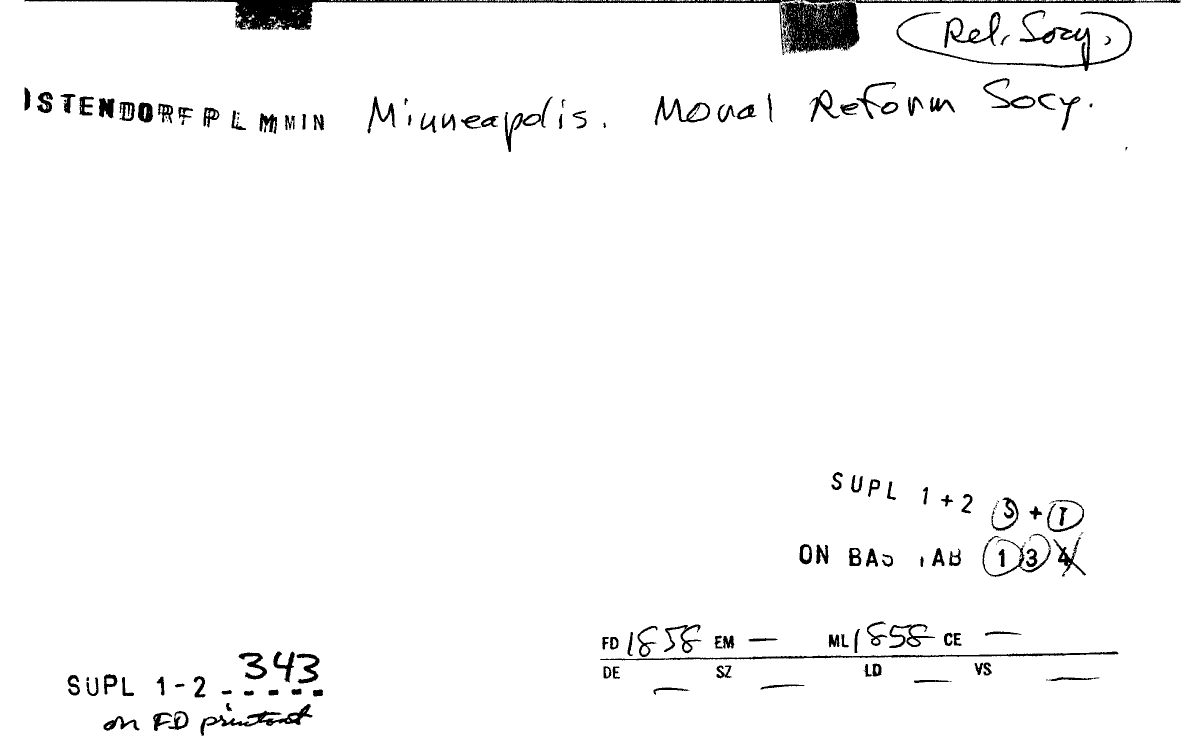 Rel. Socy.
OSTENDORF P L M MIN Minneapolis. Moral Reform Socy.
SUPL 1+2 S + T
ON BAS TAB 1 3 4
FD 1858 EM — ML 1858 CE —
DE — SZ — LD — VS —
SUPL 1-2 343
on FD printout